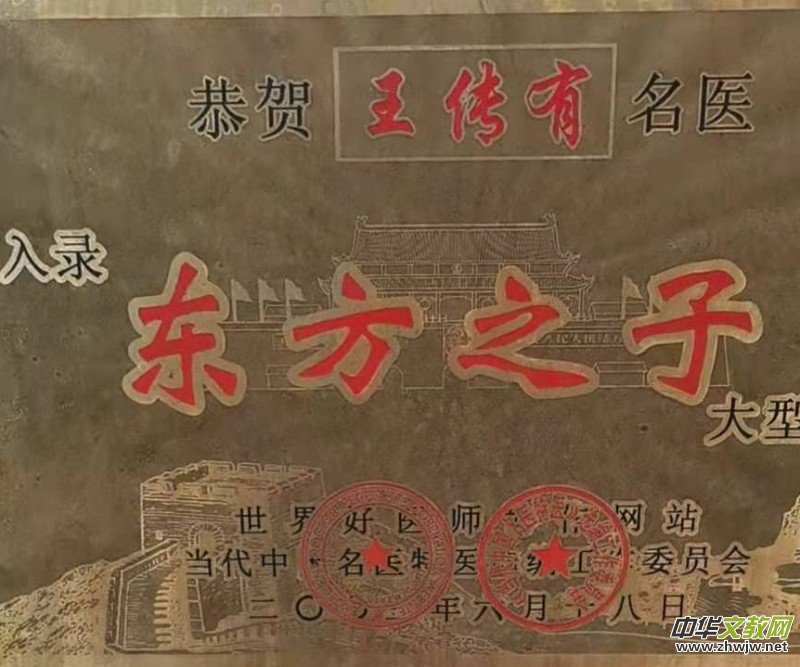 恭贺 王传有 名医
入录
东方之子
大型
世界好医师 网站
当代中 名医特医 委员会
二〇 年六月十八日
中华文教网
www.zhwjw.net